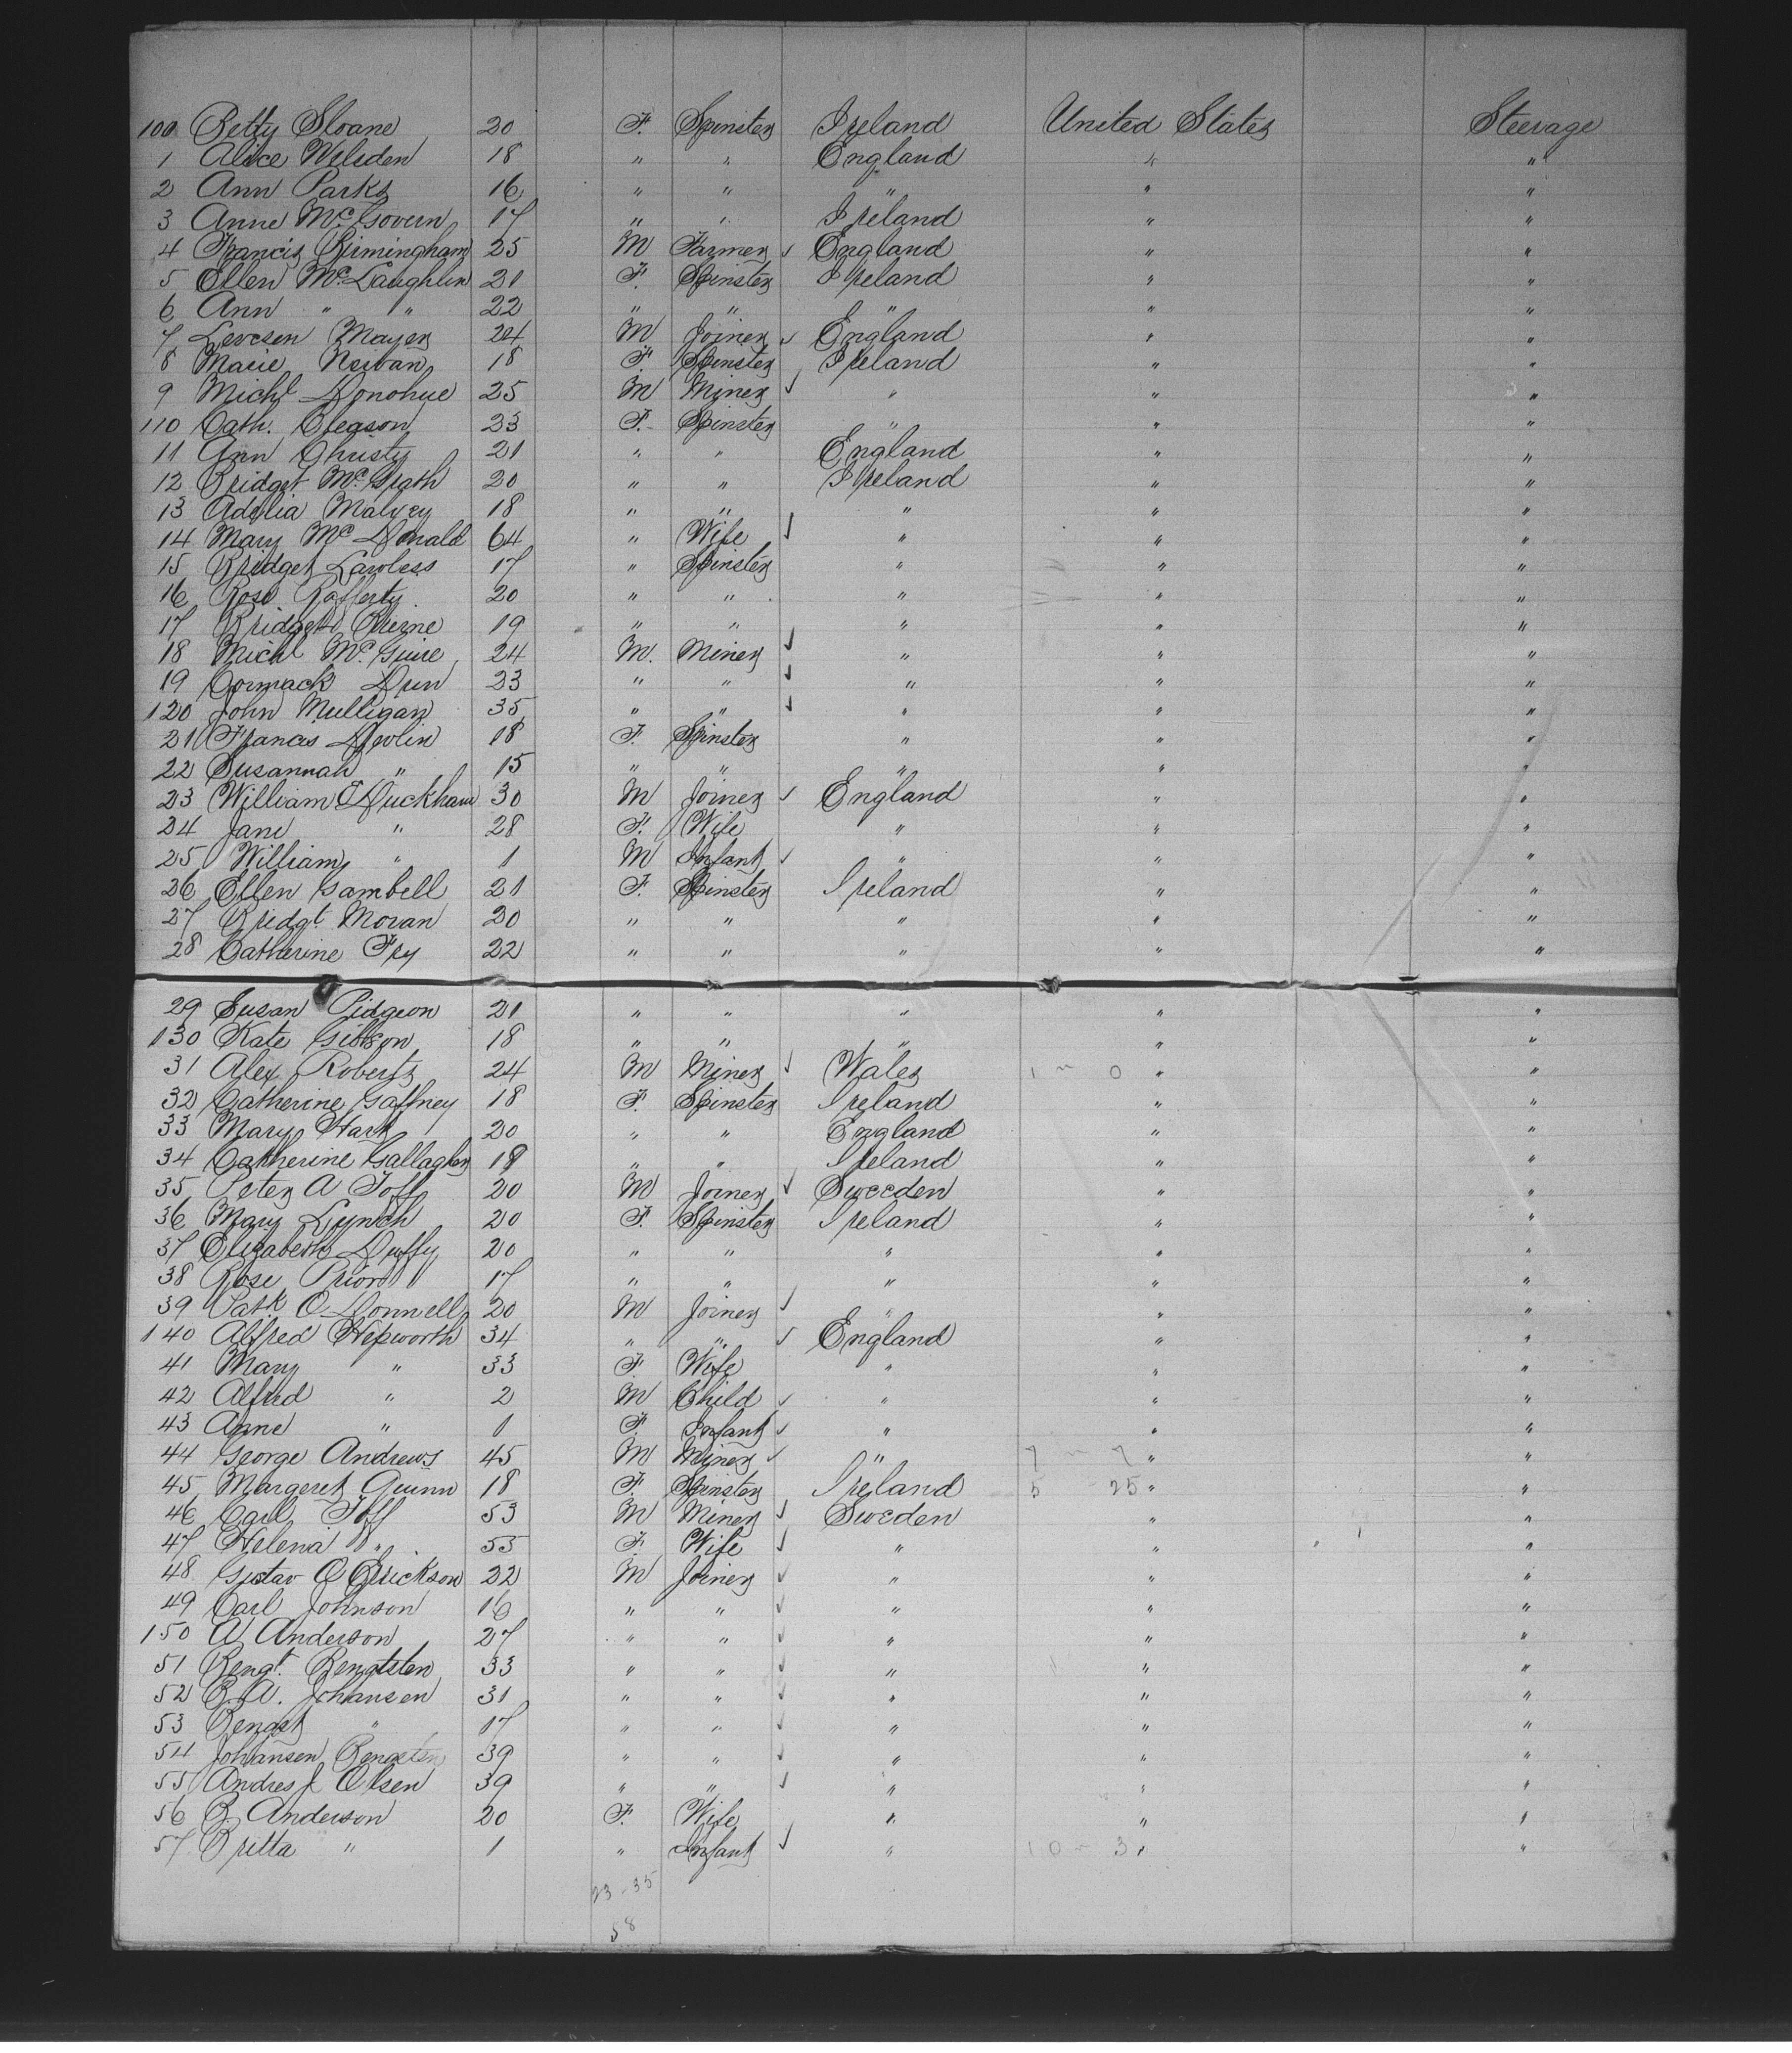 100 Betty Sloane 20 F. Spinster Ireland United States Steerage
1 Alice Wilsden 18 " " England " "
2 Ann Parks 16 " " " " "
3 Anne McGovern 17 " " Ireland " "
4 Francis Birmingham 25 M Farmer ✓ England " "
5 Ellen McLaughlin 21 F. Spinster Ireland " "
6 Ann " " 22 " " " " "
7 Levesen Mayer 24 M Joiner ✓ England " "
8 Marie Noiban 18 F. Spinster Ireland " "
9 Michl Donohue 25 M Miner ✓ " " "
110 Cath. Gleason 23 F. Spinster " " "
11 Ann Christy 21 " " England " "
12 Bridget McGrath 20 " " Ireland " "
13 Adelia Malvey 18 " " " " "
14 Mary McDonald 64 " Wife ✓ " " "
15 Bridget Lawless 17 " Spinster " " "
16 Rose Rafferty 20 " " " " "
17 Bridget Beirne 19 " " " " "
18 Michl McGuire 24 M. Miner ✓ " " "
19 Cormack Dun 23 " " ✓ " " "
120 John Mulligan 35 " " ✓ " " "
21 Frances Devlin 18 F. Spinster " " "
22 Susannah " 15 " " " " "
23 William Duckham 30 M Joiner ✓ England " "
24 Jane " 28 F. Wife " " "
25 William " 1 M Infant ✓ " " "
26 Ellen Gambell 21 F. Spinster Ireland " "
27 Bridgt Moran 20 " " " " "
28 Catherine Fry 22 " " " " "
29 Susan Pidgeon 21 " " " " "
130 Kate Gibson 18 " " " " "
31 Alex Roberts 24 M Miner ✓ Wales 1 ~ 0 " "
32 Catherine Gaffney 18 F. Spinster Ireland " "
33 Mary Hart 20 " " England " "
34 Catherine Gallagher 18 " " Ireland " "
35 Peter A Toff 20 M Joiner ✓ Sweeden " "
36 Mary Lynch 20 F. Spinster Ireland " "
37 Elizabeth Duffy 20 " " " " "
38 Rose Prior 17 " " " " "
39 Patk O Donnell 20 M Joiner ✓ " " "
140 Alfred Hepworth 34 " " ✓ England " "
41 Mary " 33 F. Wife " " "
42 Alfred " 2 M Child ✓ " " "
43 Anne " 1 F. Infant ✓ " " "
44 George Andrews 45 M Miner ✓ " 7 ~ 7 " "
45 Margeret Quinn 18 F. Spinster Ireland 5 25 " "
46 Carl Toff 53 M Miner ✓ Sweden " "
47 Helena " 55 F. Wife ✓ " " "
48 Gustav O Erickson 22 M Joiner ✓ " " "
49 Carl Johnson 16 " " ✓ " " "
150 A Anderson 27 " " ✓ " " "
51 Bengt. Bengtsten 33 " " ✓ " " "
52 B. A. Johansen 31 " " ✓ " " "
53 Bengt " 17 " " ✓ " " "
54 Johansen Bengsten 39 " " ✓ " " "
55 Andres J. Olsen 39 " " ✓ " " "
56 B. Anderson 20 F. Wife " " "
57 Britta " 1 " Infant ✓ " 10 ~ 3 " "
23 - 35
58